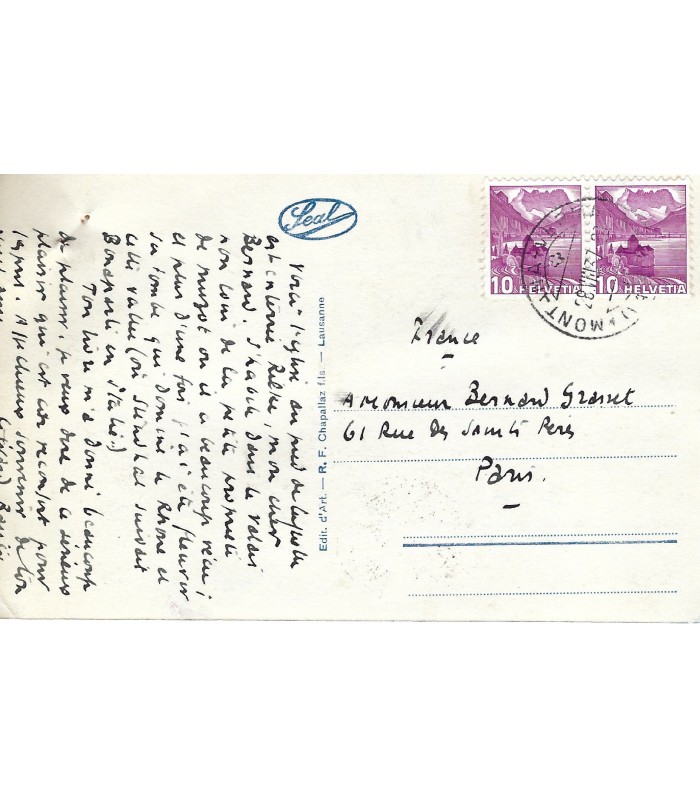 Voici l'église au pied de laquelle
est enterré Rilke, mon cher
Bernard. J'habite dans le Valais
non loin de la petite propriété
de Muzot où il a beaucoup vécu ;
et plus d'une fois j'ai été fleurir
sa tombe qui domine le Rhône et
cette vallée (où Stendhal suivait
Bonaparte en Italie)
Ton livre m'a donné beaucoup
de plaisir. je veux dire de ce sérieux
plaisir qui est un réconfort pour
l'esprit. Affectueux souvenir de ton
Seal
Edit. d'Art. — R. F. Chapallaz fils. — Lausanne
10 HELVETIA
10 HELVETIA
MONTANA
France
A Monsieur Bernard Grasset
61 Rue des Saints Peres
Paris.